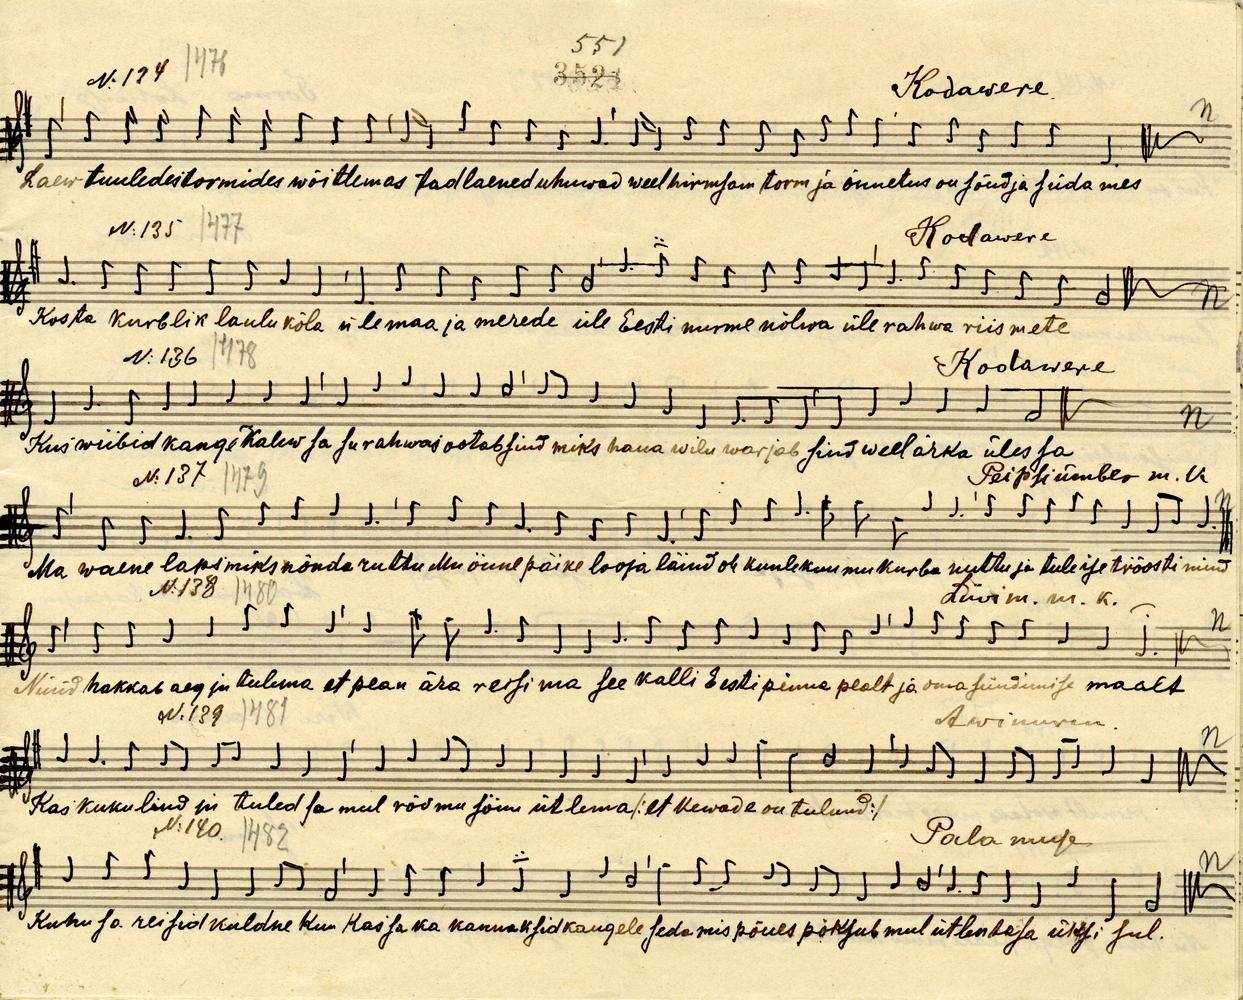 551
3524
N: 134 1476 Kodawere.
Laew tuuledes tormides wõitlemas tad laened uhuwad weel hirmsam torm ja õnnetus on sõudja süda mes
N: 135 1477 Kodawere
Kosta kurblik laulu kõla üle maa ja merede üle Eesti nurme nõlwa üle rahwa riismete
N: 136 1478 Kodawere
Kus wiibid kange Kalew sa su rahwas ootab sind miks haua wilu warjab sind weel ärka üles sa
N: 137 1479 Peipsi ümber m. k
Ma waene laps miks nõnda ruttu Mu õnne päike looja läind oh kuule kuu mu kurba nuttu ja tule ise tröösti mind
N: 138 1480 m. k.
Nüüd hakkab aeg ju tulema et pean ära reisima see kalli Eesti pinna pealt ja oma sündimise maalt
N: 139 1481 Awinurm.
Kas kuku lind ju tuled sa mul rõõmu sõnu ütlema /: et kewade on tulund :/
N: 140. 1482 Palamuse
Kuhu sa reisid kuldne kuu kas sa ka kannaksid kaugele seda mis põues põksub mul ütlen ta sa üksi sul.